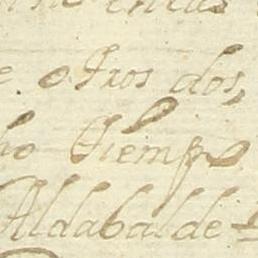 e otros dos,
ho Tiempo
Aldabalde